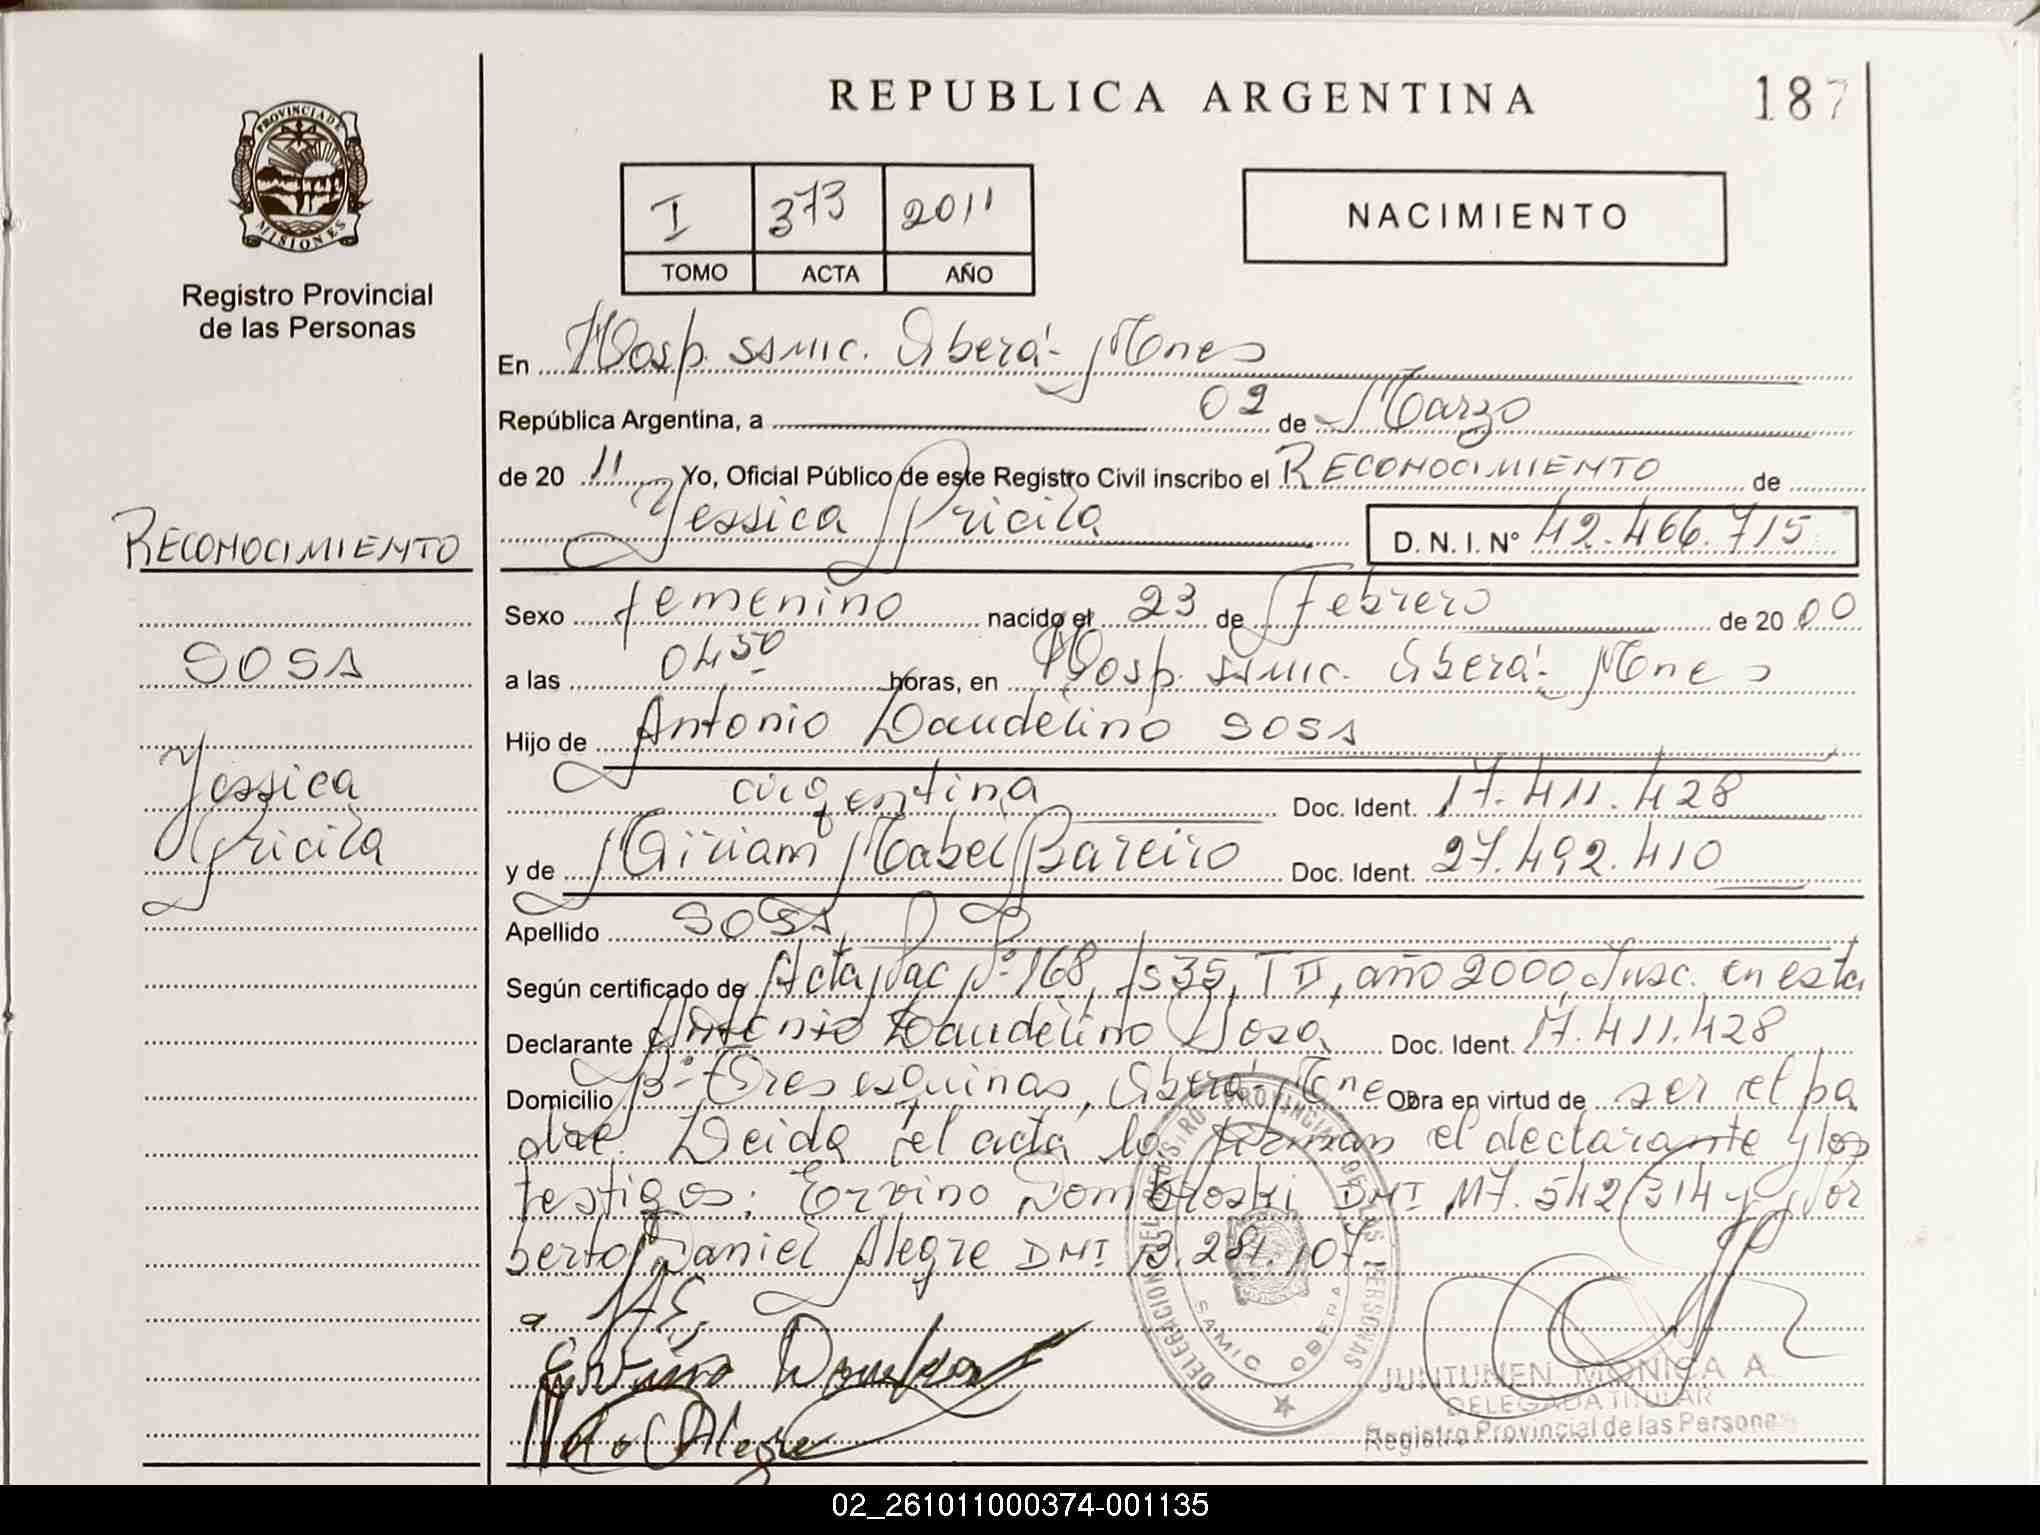 REPUBLICA ARGENTINA
187
PROVINCIA DE
MISIONES
Registro Provincial
de las Personas
I 373 2011
TOMO ACTA AÑO
NACIMIENTO
En Hosp. SAMIC. Oberá - Mnes
República Argentina, a 02 de Marzo
de 20 11 Yo, Oficial Público de este Registro Civil inscribo el RECONOCIMIENTO de
Yessica Pricila D. N. I. Nº 42.466.715
RECONOCIMIENTO
SOSA
Yessica
Pricila
Sexo femenino nacido el 23 de Febrero de 20 00
a las 04 50 horas, en Hosp. SAMIC. Oberá - Mnes
Hijo de Antonio Laudelino SOSA
argentina Doc. Ident. 17.411.428
y de Miriam Mabel Bareiro Doc. Ident. 27.492.410
Apellido SOSA
Según certificado de Acta Nac Nº 168, fs 35, T II, año 2000, Insc. en esta
Declarante Antonio Laudelino Sosa Doc. Ident. 17.411.428
Domicilio Bº Tres esquinas, Oberá - Mnes Obra en virtud de ser el pa
dre. Leida el acta la firman el declarante y los
testigos: Ervino Dombroski DNI M7.542.314 y Nor
berto Daniel Alegre DNI 13.281.107
DELEGACION DEL REGISTRO PROVINCIAL DE LAS PERSONAS
SAMIC OBERA
JUNTUNEN MONICA A
DELEGADA TITULAR
Registro Provincial de las Personas
02_261011000374-001135